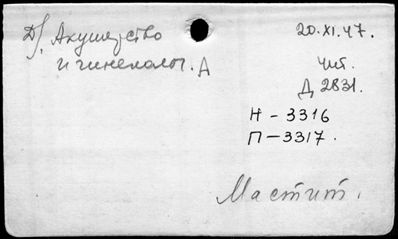 Д/. Акушерство
и гинеколог. А
20.XI.47.
Чит.
Д 2831.
Н - 3316
П - 3317.
Мастит.